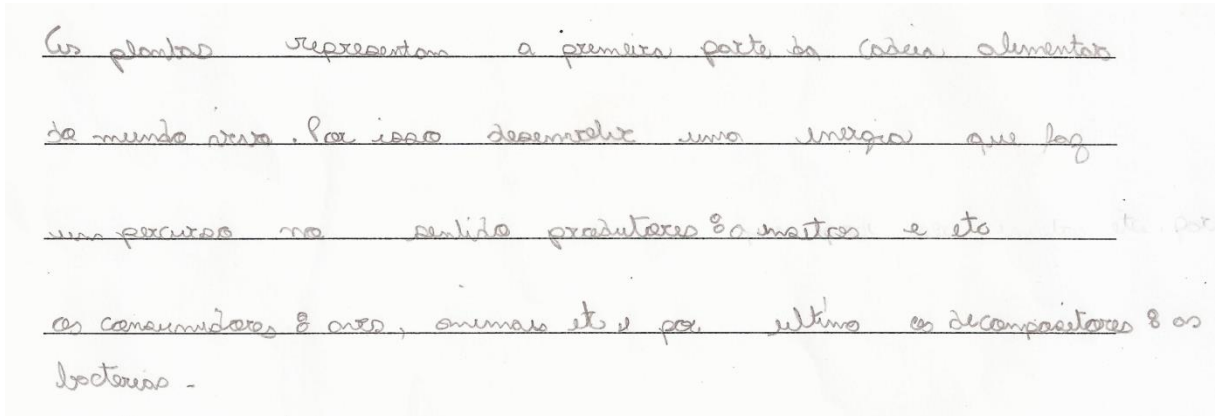 As plantas representam a premeira parte da cadeia alimentar
do mundo vivo. Por isso desenvolve uma energia que faz
um percurso no sentido produtores : a e etc
os consumidores : aves, animais etc e por ultimo os decompositores : as
bacterias -